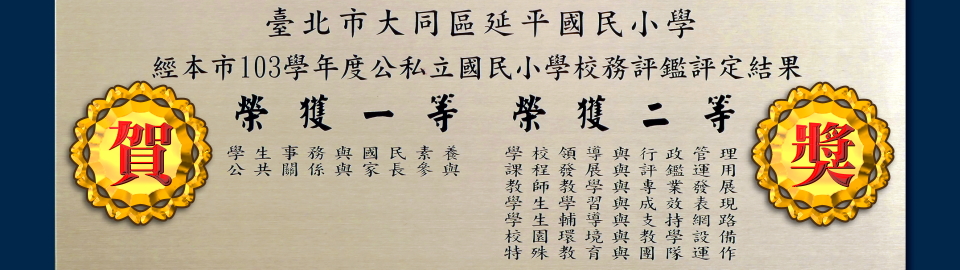 臺北市大同區延平國民小學
經本市103學年度公私立國民小學校務評鑑評定結果
賀
榮獲一等
學生事務與國民素養
公共關係與家長參與
榮獲二等
學校領導與行政管理
課程發展與評鑑運用
教師教學與專業發展
學生學習與成效表現
學生輔導與支持網路
校園環境與教學設備
特殊教育與團隊運作
獎